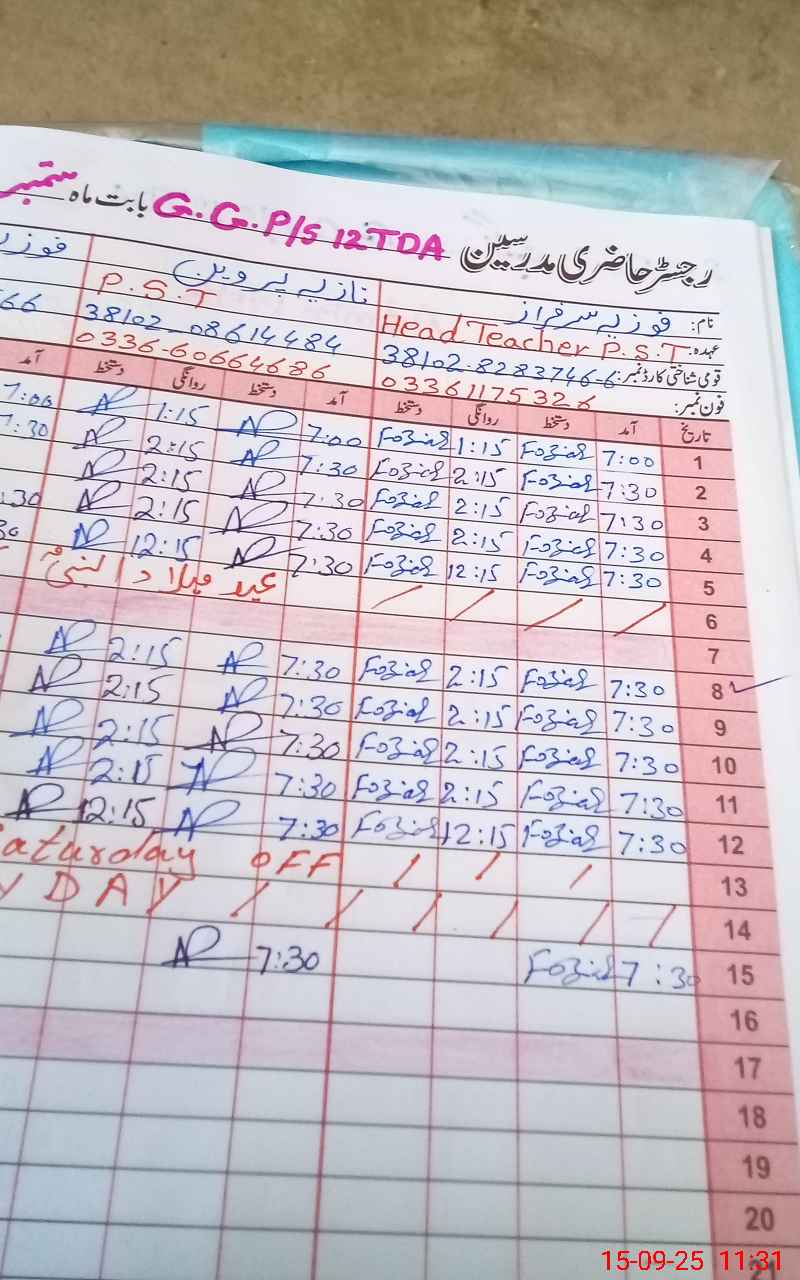 رجسٹر حاضری مدرسین G.G.P/S 12 TDA بابت ماہ ستمبر
نام: فوزیہ سرفراز نازیہ پروین
عہدہ: Head Teacher P.S.T P.S.T
قومی شناختی کارڈ نمبر: 38102-8283746-6 38102-08614484
فون نمبر: 03361175326 0336-60664686
تاریخ آمد دستخط روانگی دستخط آمد دستخط روانگی دستخط آمد
1 7:00 Fozia 1:15 Fozia 7:00 1:15 7:00
2 7:30 Fozia 2:15 Fozia 7:30 2:15 7:30
3 7:30 Fozia 2:15 Fozia 7:30 2:15
4 7:30 Fozia 2:15 Fozia 7:30 2:15
5 7:30 Fozia 12:15 Fozia 7:30 12:15
6 عید میلاد النبیؐ
7
8 7:30 Fozia 2:15 Fozia 7:30 2:15
9 7:30 Fozia 2:15 Fozia 7:30 2:15
10 7:30 Fozia 2:15 Fozia 7:30 2:15
11 7:30 Fozia 2:15 Fozia 7:30 2:15
12 7:30 Fozia 12:15 Fozia 7:30 12:15
13 aturday OFF
14 Y DAY
15 7:30 Fozia 7:30
16
17
18
19
20
21
15-09-25 11:31